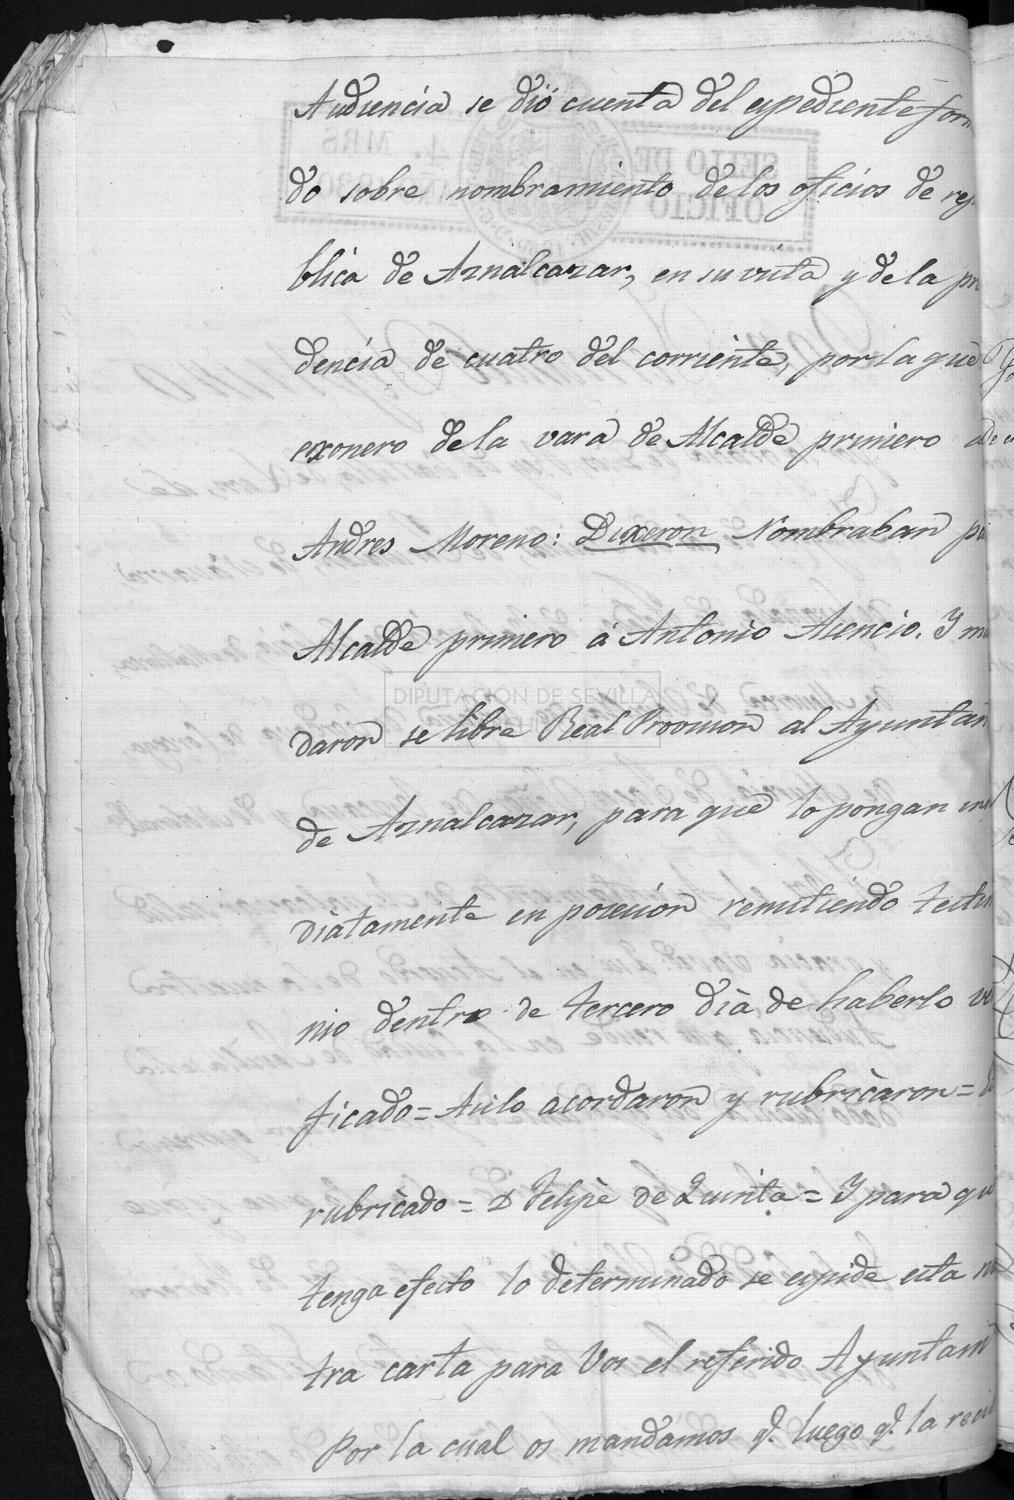 Audiencia se dió cuenta del expediente for
do sobre nombramiento de los oficios de re
blica de Aznalcazar, en su vista y de la pr
dencia de cuatro del corriente, por la que
exonero de la vara de Alcalde primero
Andres Moreno: Dixeron Nombraban
Alcalde primero á Antonio Asencio. Y m
daron se libre Real Provision al Ayuntam
de Aznalcazar, para que lo pongan in
diatamente en posesión remitiendo testi
nio dentro de tercero dia de haberlo
ficado = Asi lo acordaron y rubricaron =
rubricado = D Felipe de Quinta = Y para qu
tenga efecto lo determinado se espide esta
tra carta para Vos el referido Ayuntam
Por la cual os mandamos q.e luego q.e la reci
SELLO DE
OFICIO
4. MRS
DIPUTACIÓN DE SEVILLA